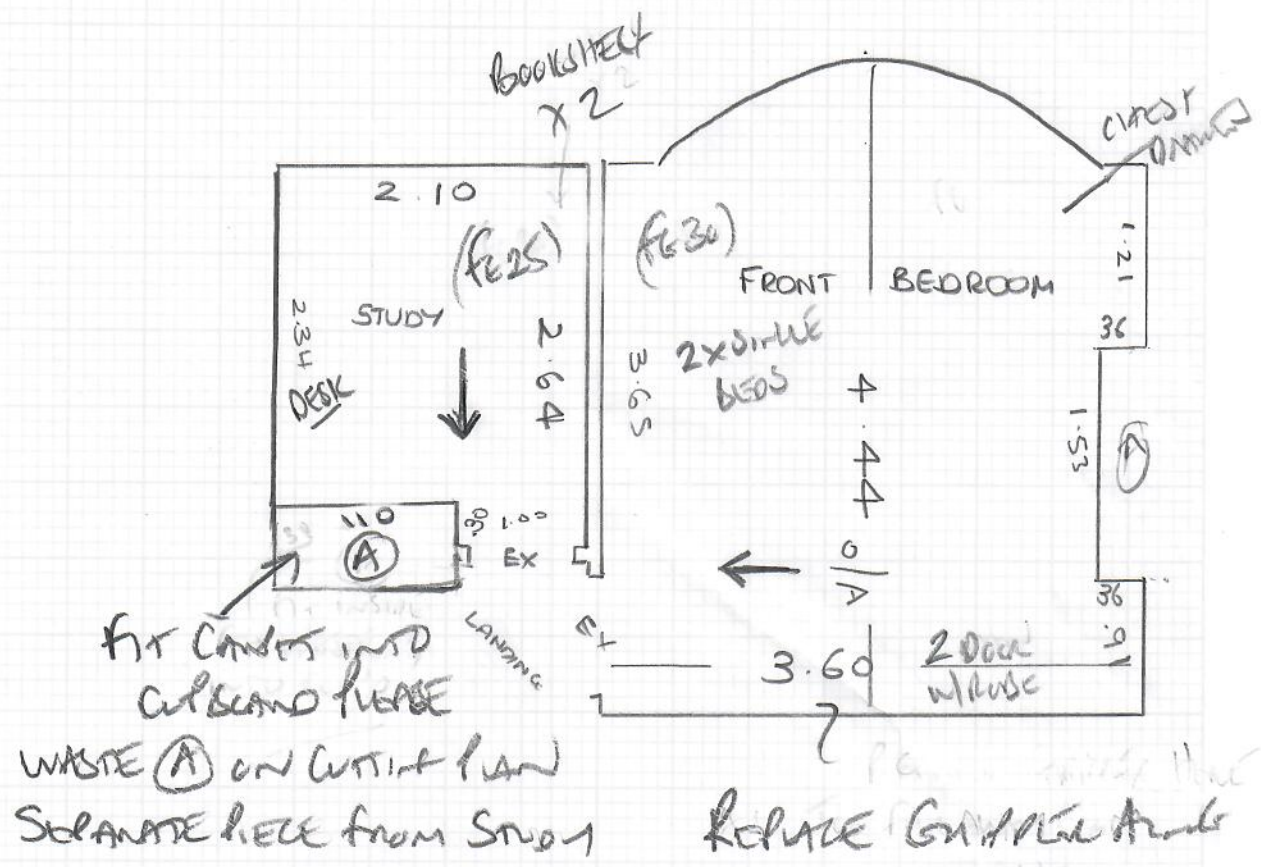 BOOKSHELF
X 2
CHEST
DRAWERS
2.10
(FE25)
(FE30)
FRONT BEDROOM
1.21
STUDY
2.34
DESK
2.64
3.65
2 X SINGLE
BEDS
4.44
O/A
36
1.53
A
110
A
.30
1.00
EX
36
.91
LANDING
EX
3.60
2 DOOR
W/ROBE
FIT CARPET INTO
CUPBOARD PLEASE
WASTE A ON CUTTING PLAN
SEPARATE PIECE FROM STUDY
REPLACE GRIPPER ALONG